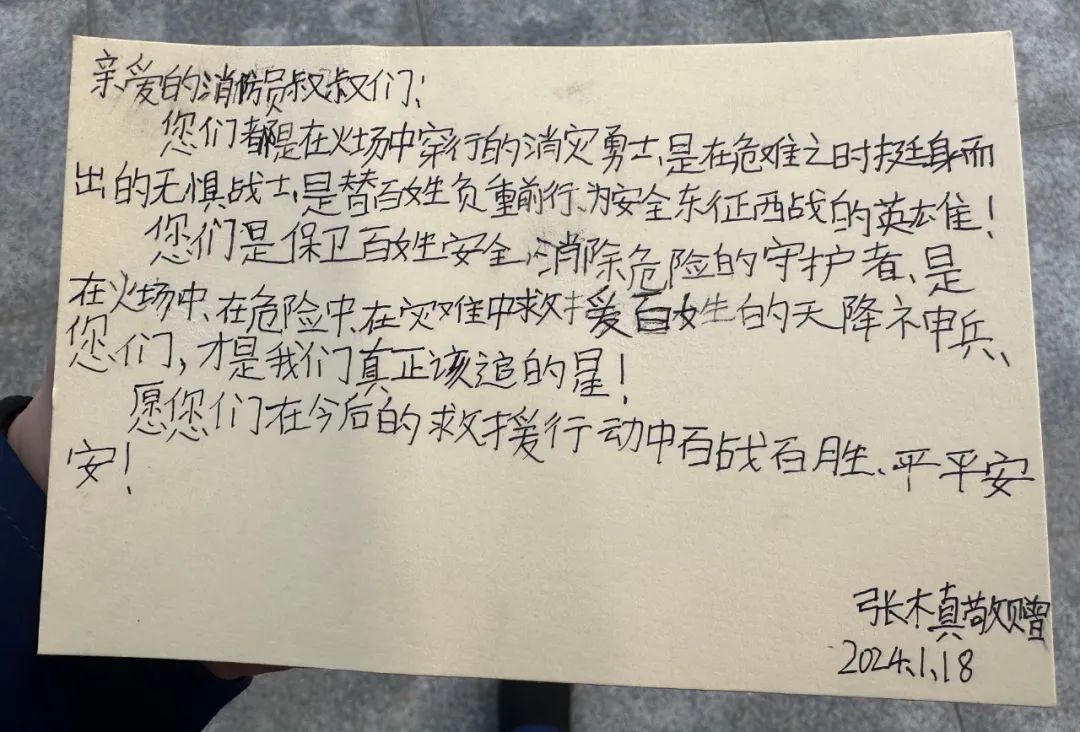 亲爱的消防员叔叔们：
您们都是在火场中穿行的消灾勇士,是在危难之时挺身而
出的无惧战士,是替百姓负重前行、为安全东征西战的英雄！
您们是保卫百姓安全、消除危险的守护者、是
在火场中、在危险中、在灾难中救援百姓的天降神兵、
您们，才是我们真正该追的星！
愿您们在今后的救援行动中百战百胜、平平安
安！
张木真敬赠
2024.1.18